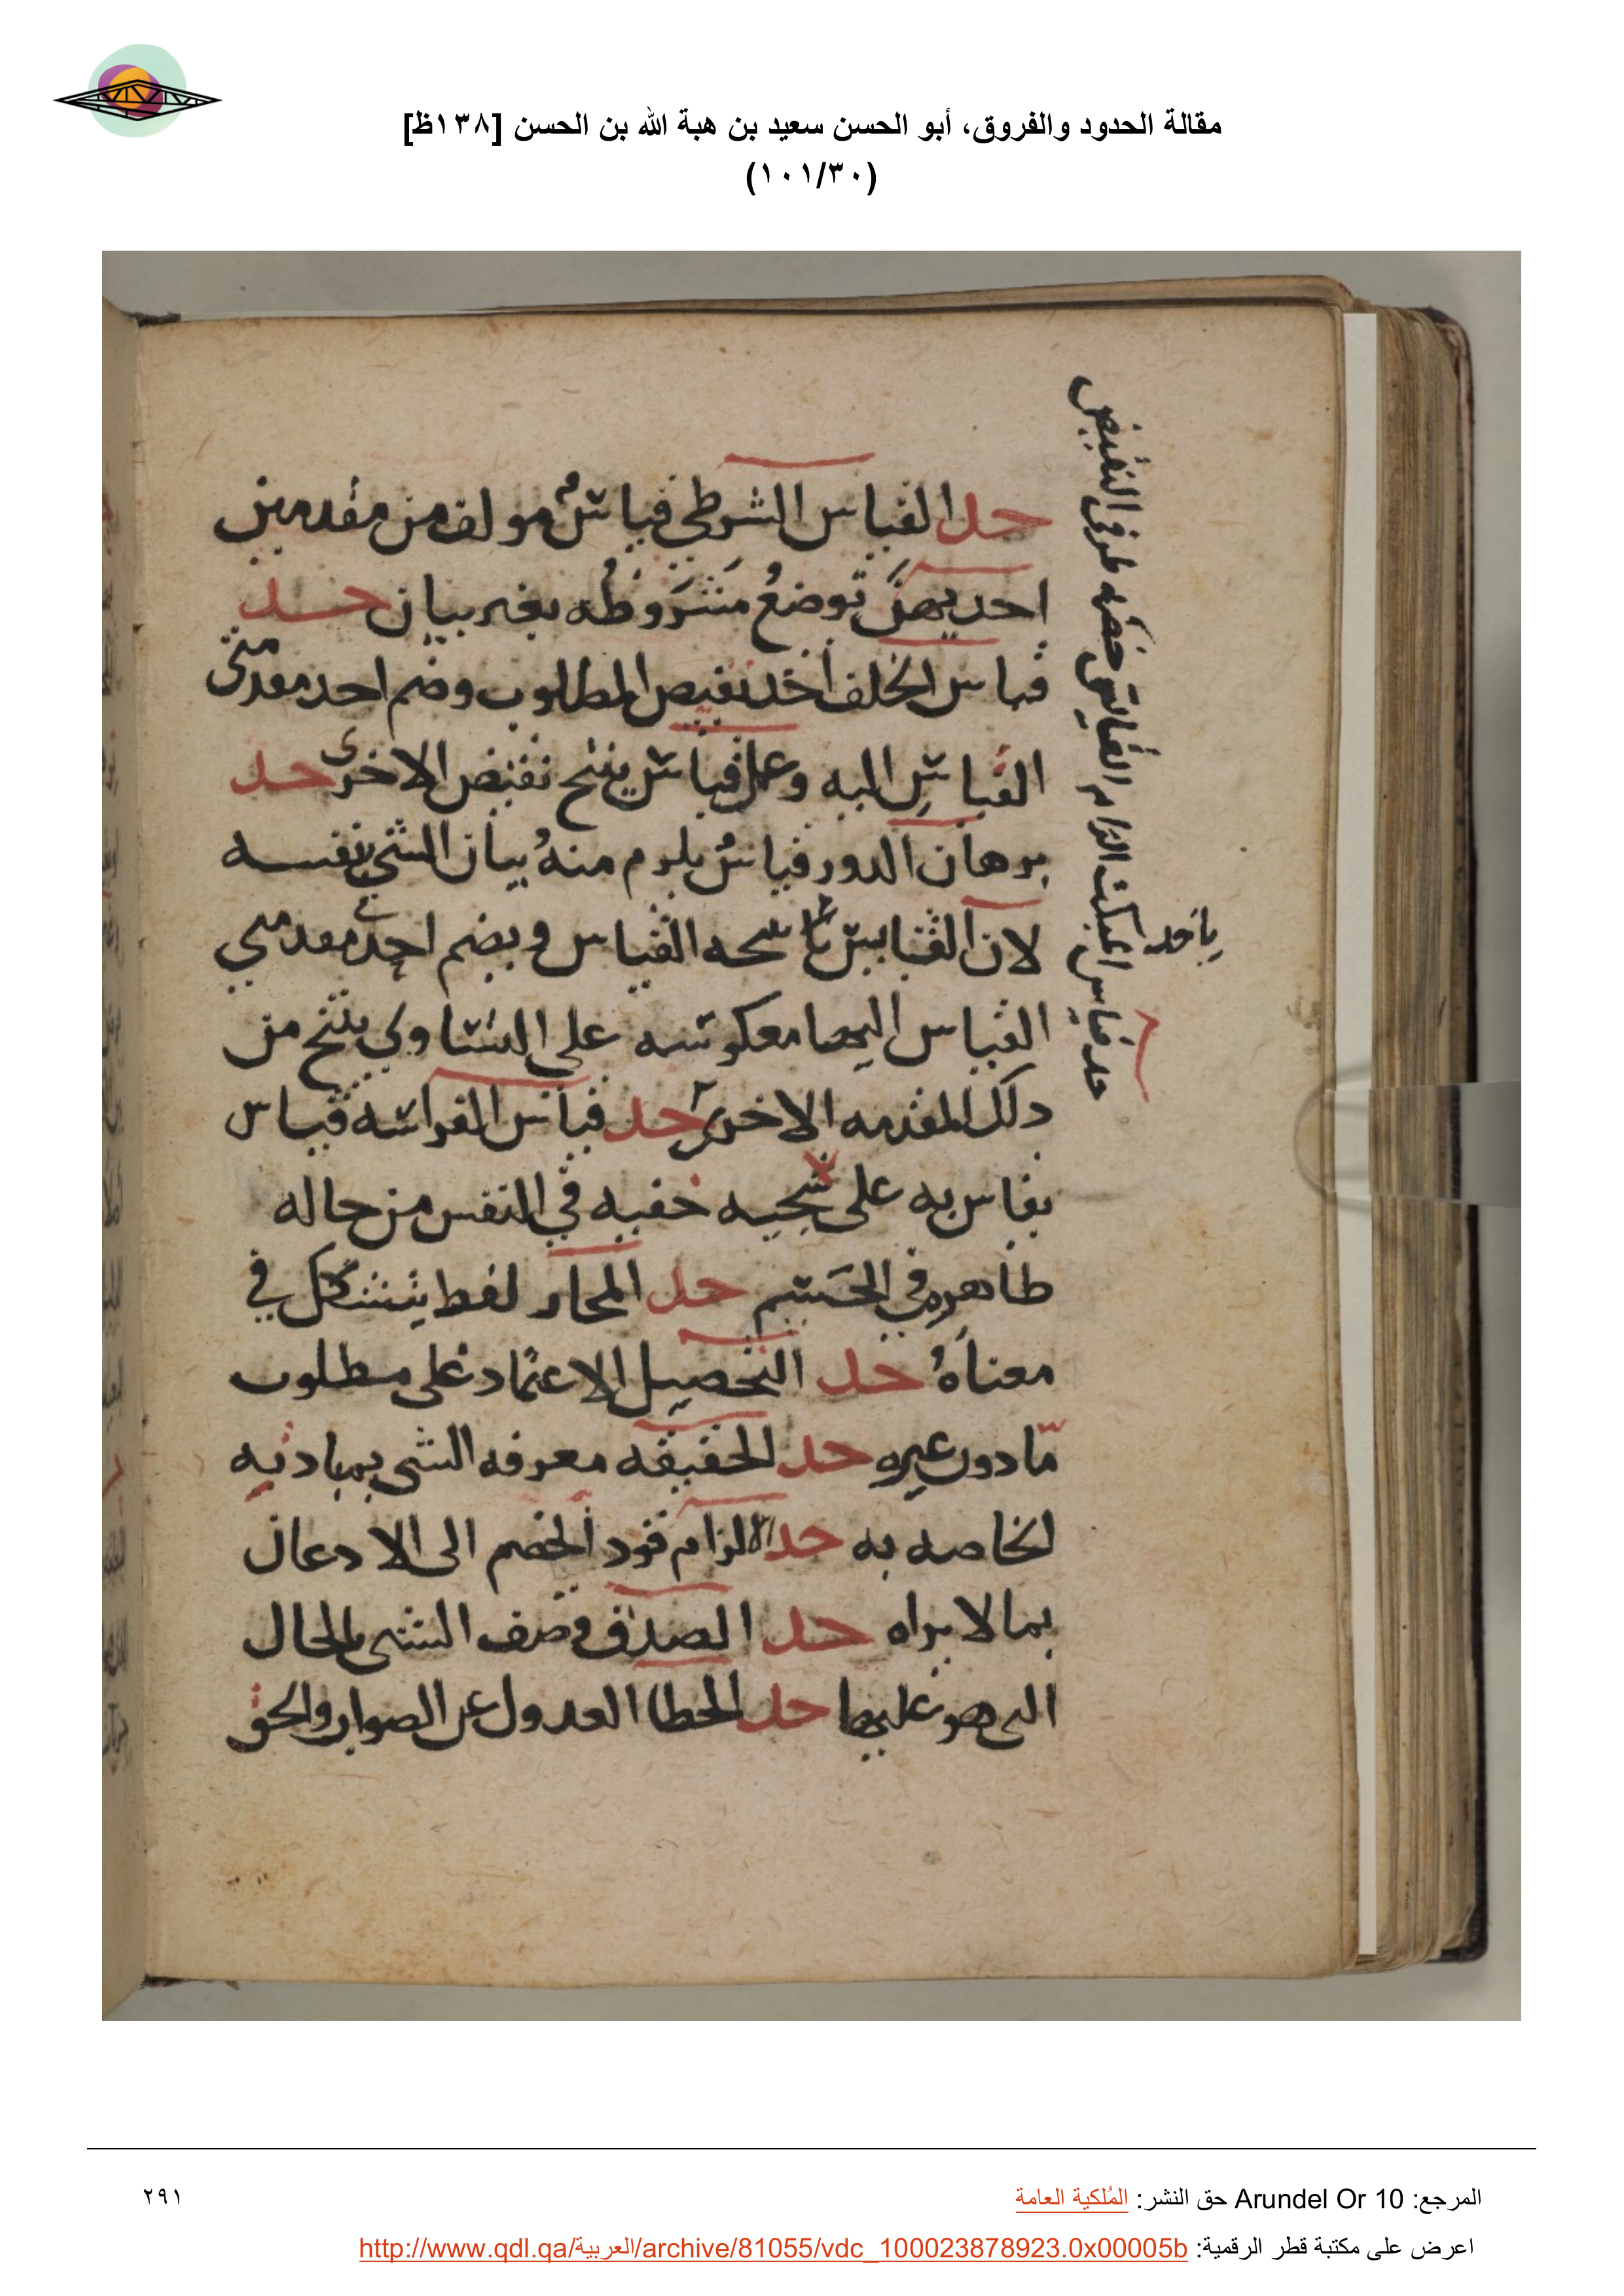 مقالة الحدود والفروق، أبو الحسن سعيد بن هبة الله بن الحسن [١٣٨ظ]
(١٠١/٣٠)
حد القياس الشرطي قياسٌ مولف من مقدمين
احديهن توضعُ مَشروطه بغير بيان حد
قياس الخلف أخذ نقيض المطلوب وضم احد مقدمتي
القياسِ اليه وعمل قياس ينتج نقيض الاخرى حد
برهان الدور قياسٌ يلزم منهُ بيان الشي بنفسه
لان القياس القياس ويضم احد مقدمتي
القياس اليها معكوسه على التساوي ينتج من
ذلك المقدمه الاخرى حد قياس الفراسه قياس
يقاس به على سجيه خفيه في النفس من حاله
طاهره في الجسم حد المجاز لفط يتشكل في
معناهُ حد التحصيل الاعتماد على مطلوب
مّا دون غيره حد الحقيقه معرفه الشي بمباديه
الخاصه به حد الالزام قود الخصم الى الادعان
بما لا يراه حد الصدق وصف الشي بالحال
التي هو عليها حد الخطا العدول عن الصواب والحق
حد قياس التبكيت الزام القايس خصمه طرفي النقيض
ياخذ
المرجع: Arundel Or 10 حق النشر: المُلكية العامة
٢٩١
اعرض على مكتبة قطر الرقمية: http://www.qdl.qa/العربية/archive/81055/vdc_100023878923.0x00005b